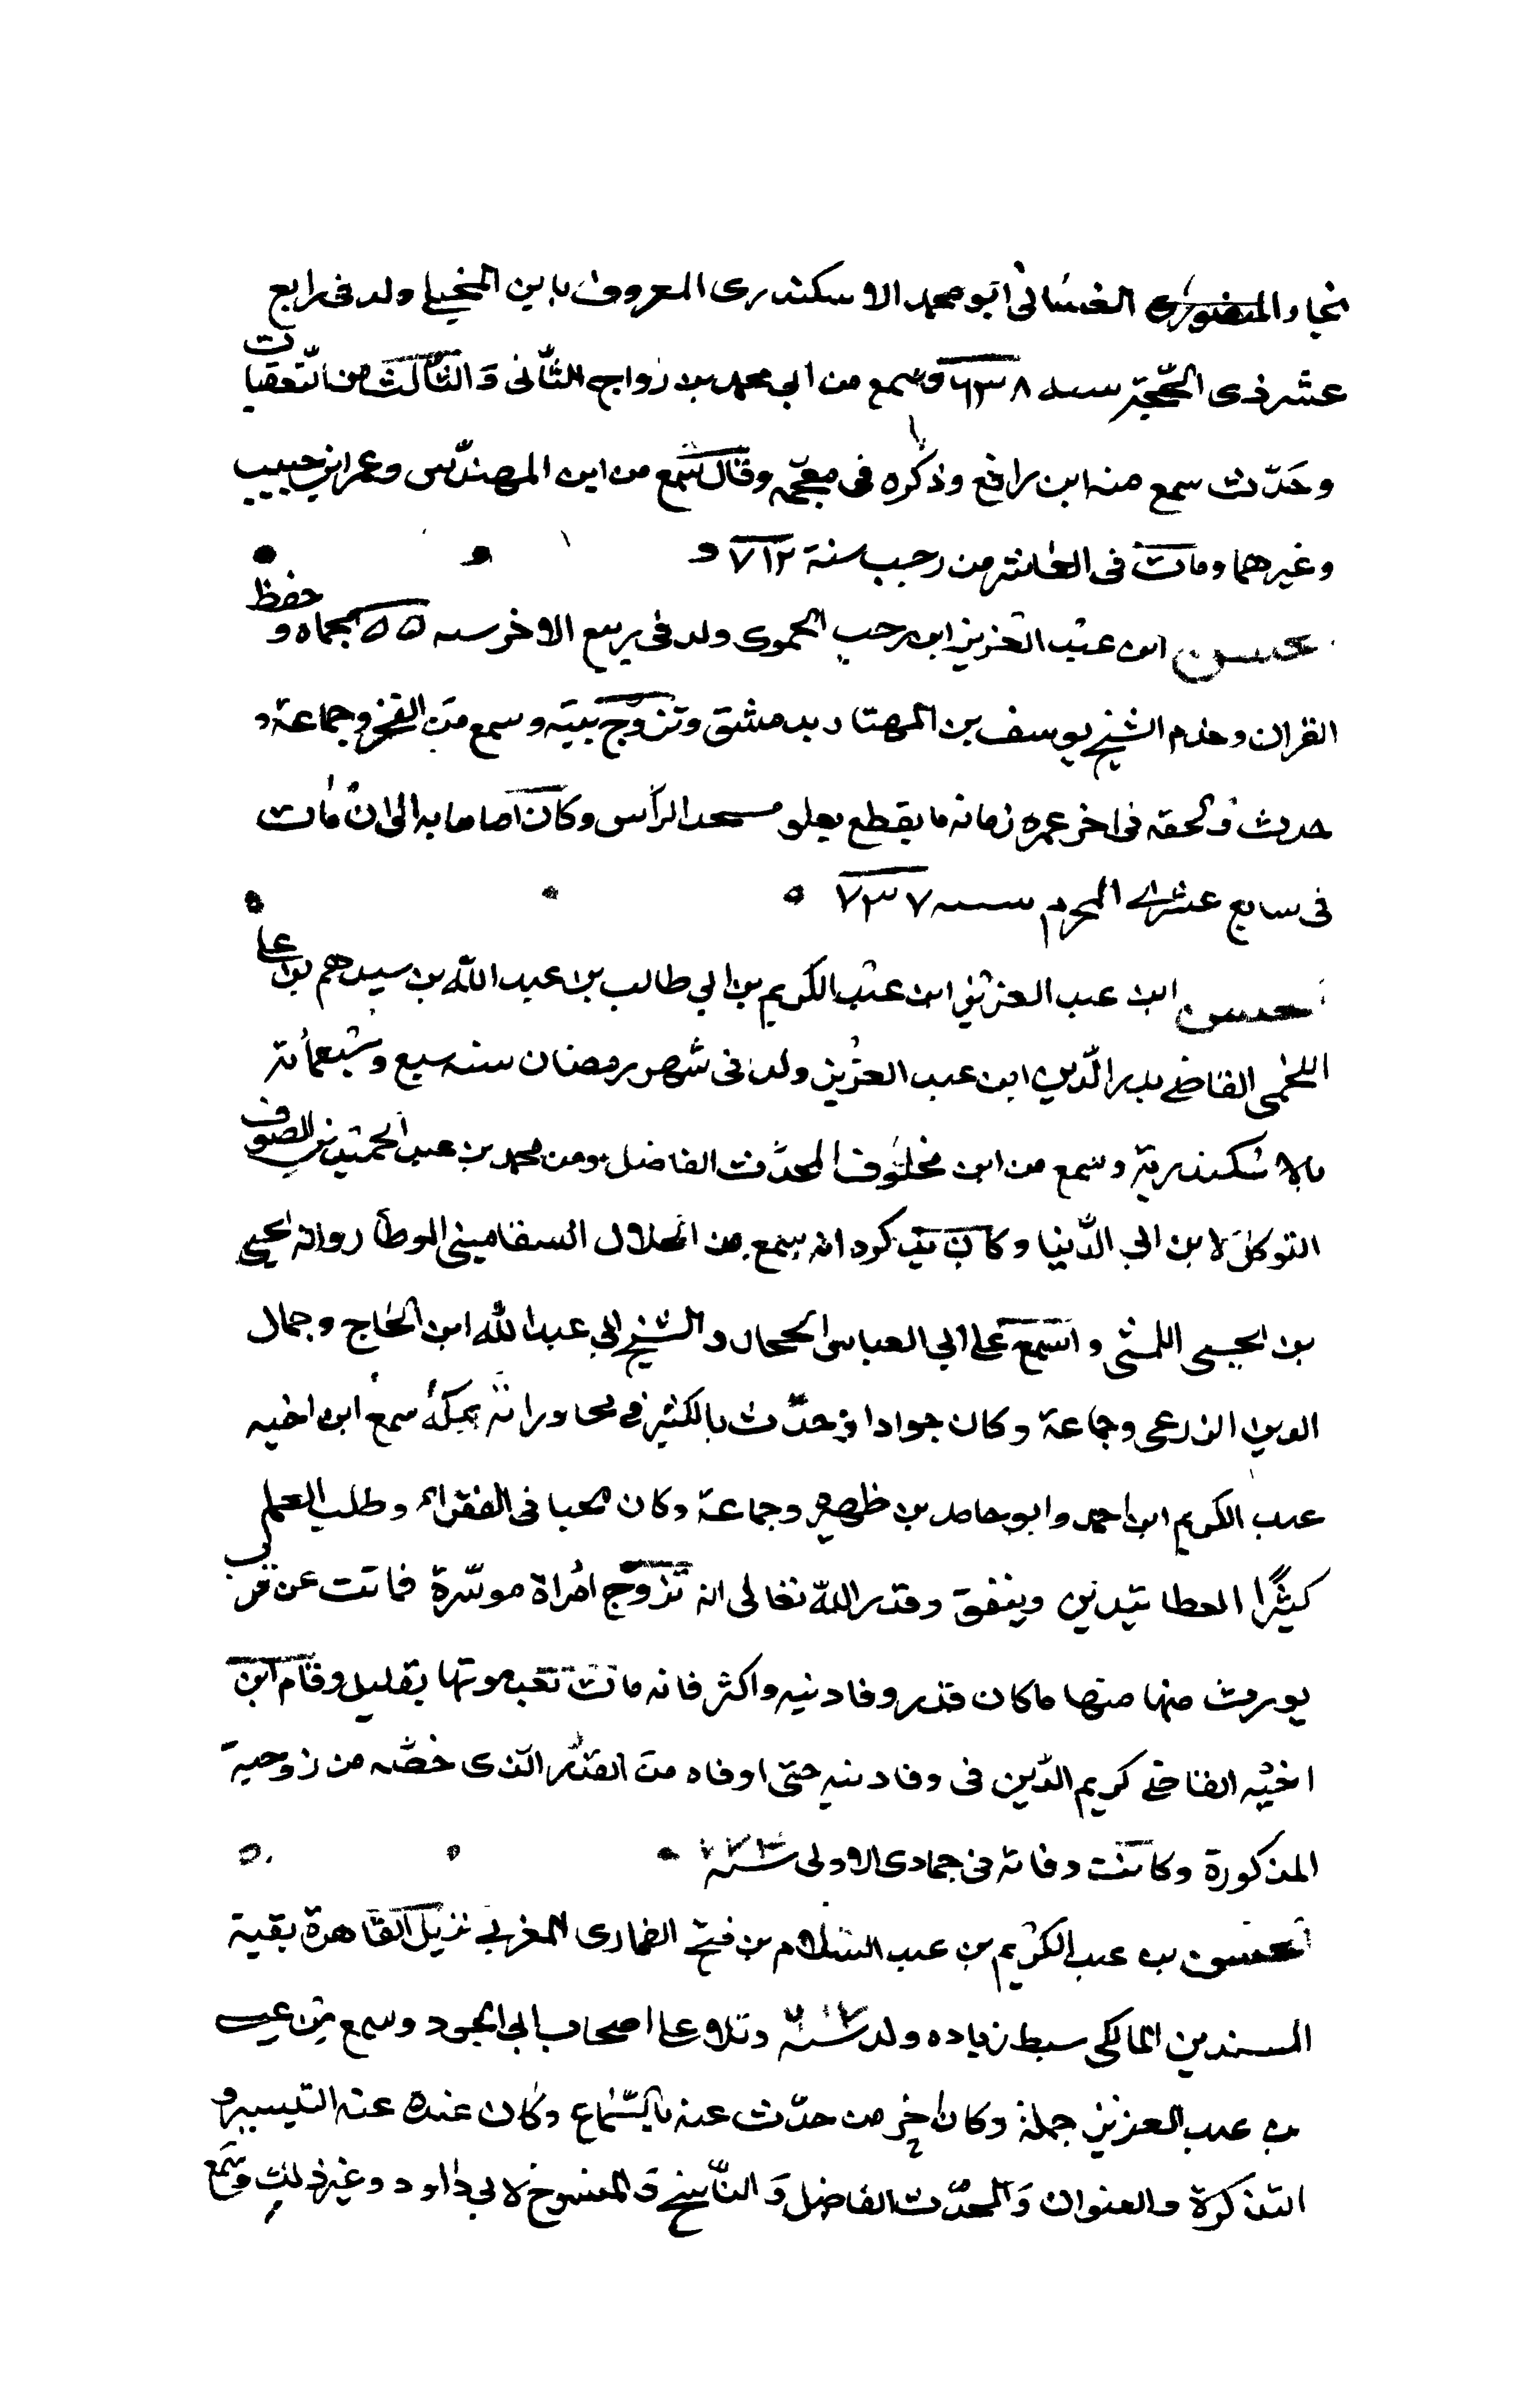 نجا والمنصوري الغساني ابو محمد الاسكندرى المعروف بابن المخيلي ولد فى رابع
عشر ذى الحجة سنه ٦٣٨ وسمع من ابي محمد بن رواج الثانى والثالث من الثقفيات
وحدث سمع منه ابن رافع وذكره فى معجمه وقال سمع من ابن المهندس وعمر ابن حبيب
وغيرهما ومات فى العاشر من رجب سنة ٧١٢
حسن ابن عبد العزيز ابن رجب الحموى ولد فى ربيع الاخر سنه ٥٥ بحماه وحفظ
القران وخدم الشيخ يوسف بن المهتار بدمشق وتزوج بنته وسمع من الفخر وجماعة و
حدث ولحقه فى اخر عمره زمانه ما يقطع بعلو مسجد الراس وكان اماما به الى ان مات
فى سابع عشرى المحرم سنه ٧٣٧
حسن ابن عبد العزيز ابن عبد الكريم بن ابي طالب بن عبد الله بن سيدهم بن علي
اللخمى القاضى بدر الدين ابن عبد العزيز ولد فى شهر رمضان سنه سبع وسبعمائة
بالاسكندرية وسمع من ابن مخلوف المحدث الفاضل ومن محمد بن عبد الحميد بن الصوف
التوكل لابن ابي الدنيا وكان يذكر انه سمع من الجلال السفاميني الموطأ رواية يحيى
بن يحيى الليثى واسمع على ابي العباس الحجار والشيخ ابي عبد الله ابن الحاج وجمال
الدين الزرعى وجماعة وكان جوادا وحدث بالكثير فى مجاوراته بمكة سمع ابن اخيه
عبد الكريم ابن احمد وابو حامد بن ظهيرة وجماعة وكان محبا فى الفقراء وطلب العلم
كثيرا العطا يتدين وينفق وقدر الله تعالى انه تزوج امراة موسرة فماتت عن قرب
يورث منها منها ماكان قدر وفا دينه واكثر فانه مات بعد موتها بقليل وقام ابن
اخيه القاضى كريم الدين فى وفا دينه حتى اوفاه من القدر الذى خصه من زوجية
المذكورة وكانت وفاته فى جمادى الاولى سنه
حسن بن عبد الكريم بن عبد السلام بن فتح الغمارى المغربي نزيل القاهرة بقية
المسندين المالكى سبط زياده ولد سنة وتلا على اصحاب ابي الجود وسمع من عيسى
بن عبد العزيز جملة وكان اخر من حدث عنه بالسماع وكان عنده عنه التيسير و
التذكرة والعنوان والمحدث الفاضل والناسخ والمنسوخ لابي داود وغير ذلك وسمع